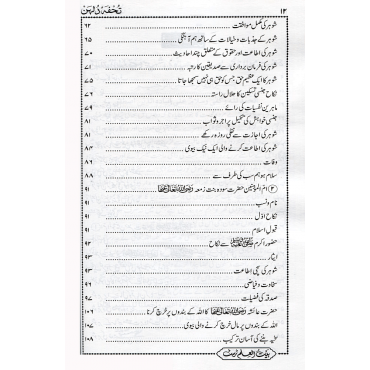 ۱۴ تحفۂ دُلہن
شوہر کی مکمل موافقت ۶۲
شوہر کے جذبات و خیالات کے ساتھ ہم آہنگی ۶۵
شوہر کی اطاعت اور حقوق کے متعلق چند احادیث ۷۰
شوہر کی فرمان برداری سے صدیقین کا رتبہ ۷۱
شوہر کا ایک عظیم حق جس کو حق ہی نہیں سمجھا جاتا ۷۵
نکاح جنسی تسکین کا حلال راستہ ۷۶
ماہرین نفسیات کی رائے ۷۹
جنسی خواہش کی تکمیل پر اجر و ثواب ۸۱
شوہر کی اجازت سے نفلی روزہ رکھے ۸۱
شوہر کی اطاعت کرنے والی ایک نیک بیوی ۸۴
وفات ۸۶
سلام ہو ہم سب کی طرف سے ۸۸
ام المؤمنین حضرت سودہ بنت زمعہ رضی اللہ تعالیٰ عنہا ۹۱
نام و نسب ۹۱
نکاح اوّل ۹۱
قبول اسلام ۹۱
حضور اکرم صلی اللہ علیہ وسلم سے نکاح ۹۲
ایثار ۹۳
شوہر کی سچی اطاعت ۹۳
سخاوت و فیاضی ۹۶
صدقہ کی فضیلت ۹۷
حضرت عائشہ رضی اللہ تعالیٰ عنہا کا اللہ کے بندوں پر خرچ کرنا ۱۰۶
اللہ کے بندوں پر مال خرچ کرنے والی بیوی ۱۰۷
بننے کی آسان ترکیب ۱۰۸
بیت العلم ٹرسٹ